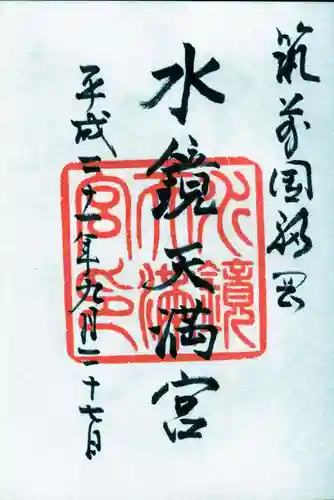 筑前国福岡
水鏡天満宮
平成二十一年九月二十七日
水鏡天満宮印